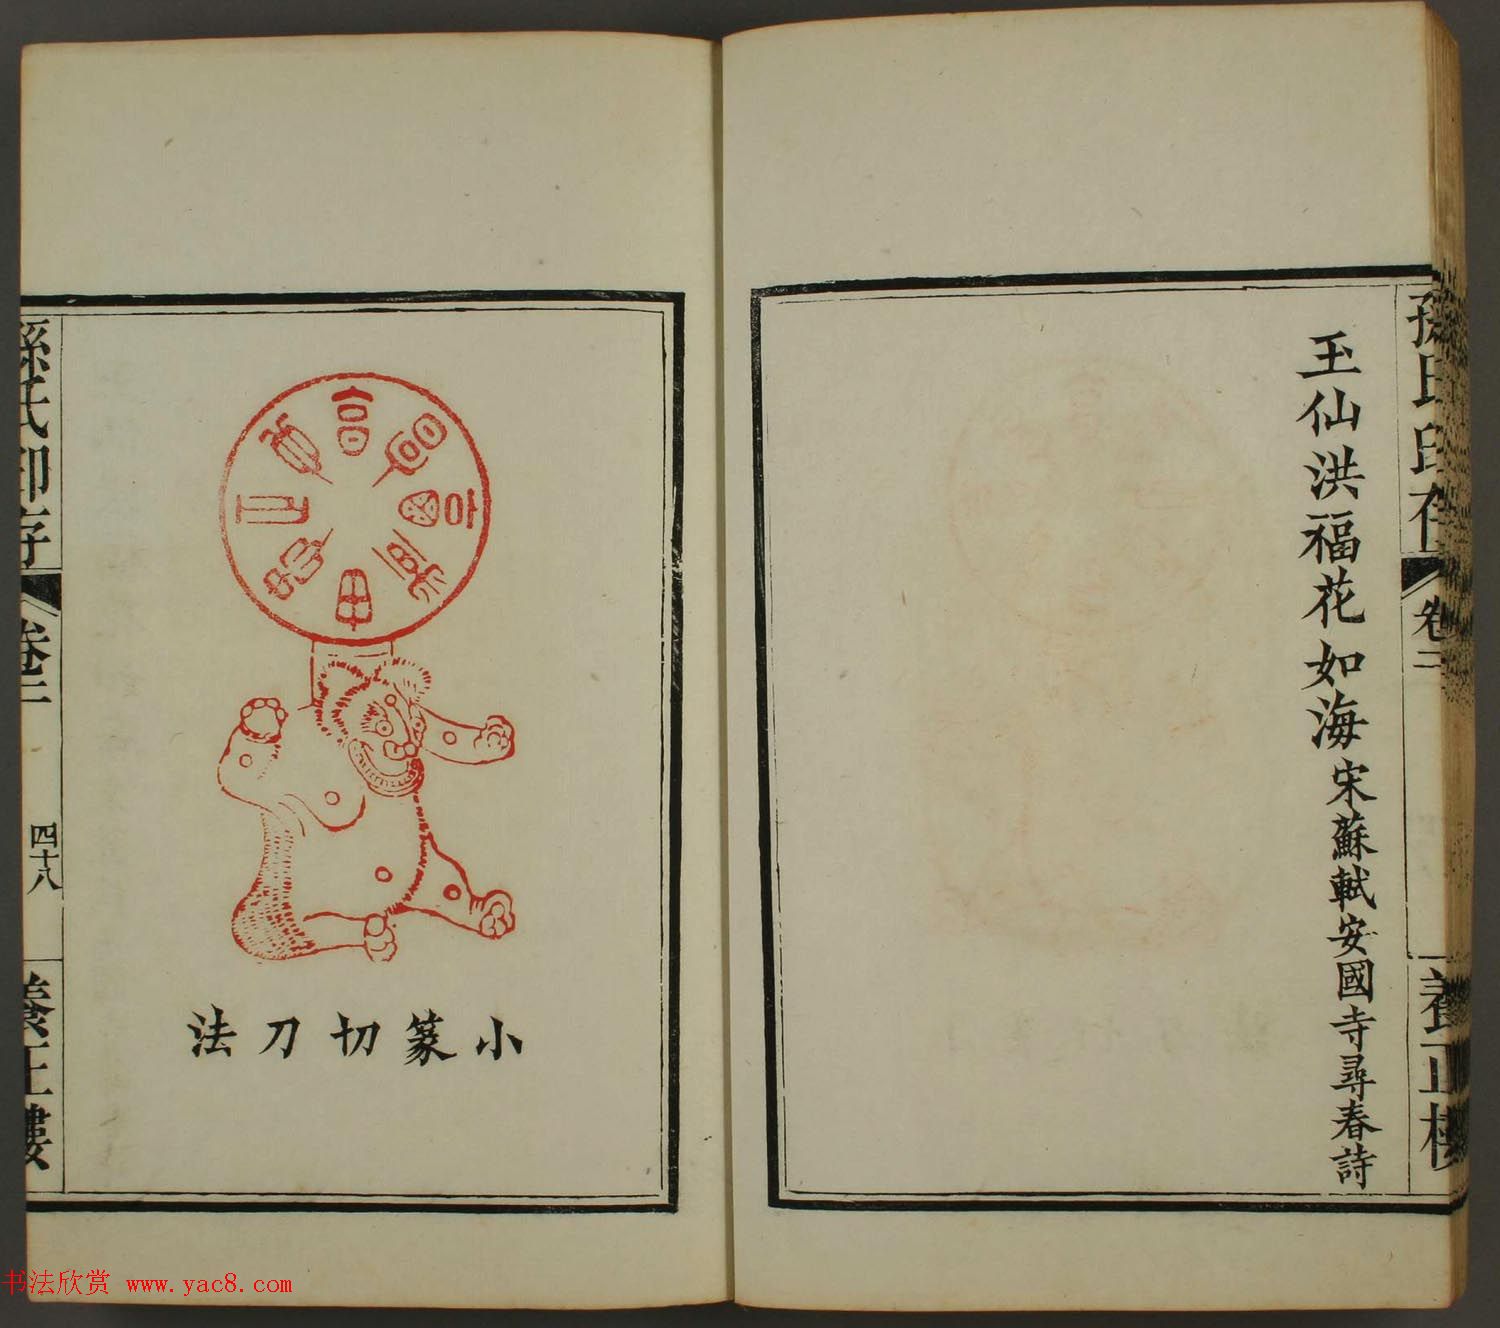 玉仙洪福花如海宋蘇軾安國寺尋春詩
孫氏印存
卷二
養正樓
小篆切刀法
孫氏印存
卷二
四十八
養正樓
书法欣赏 www.yac8.com